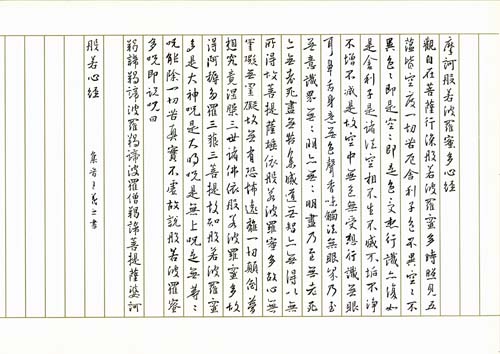 摩訶般若波羅蜜多心經
觀自在菩薩行深般若波羅蜜多時照見五
蘊皆空度一切苦厄舍利子色不異空々不
異色々即是空々即是色受想行識亦復如
是舍利子是諸法空相不生不滅不垢不淨
不增不減是故空中無色無受想行識無眼
耳鼻舌身意無色聲香味觸法無眼界乃至
無意識界無々明亦無々明盡乃至無老死
亦無老死盡無苦集滅道無智亦無得以無
所得故菩提薩埵依般若波羅蜜多故心無
罣礙無罣礙故無有恐怖遠離一切顛倒夢
想究竟涅槃三世諸佛依般若波羅蜜多故
得阿耨多羅三藐三菩提故知般若波羅蜜
多是大神呪是大明呪是無上呪是無等々
呪能除一切苦真實不虛故說般若波羅蜜
多呪即說呪曰
羯諦羯諦波羅羯諦波羅僧羯諦菩提薩婆訶
般若心經
集晉王羲之書